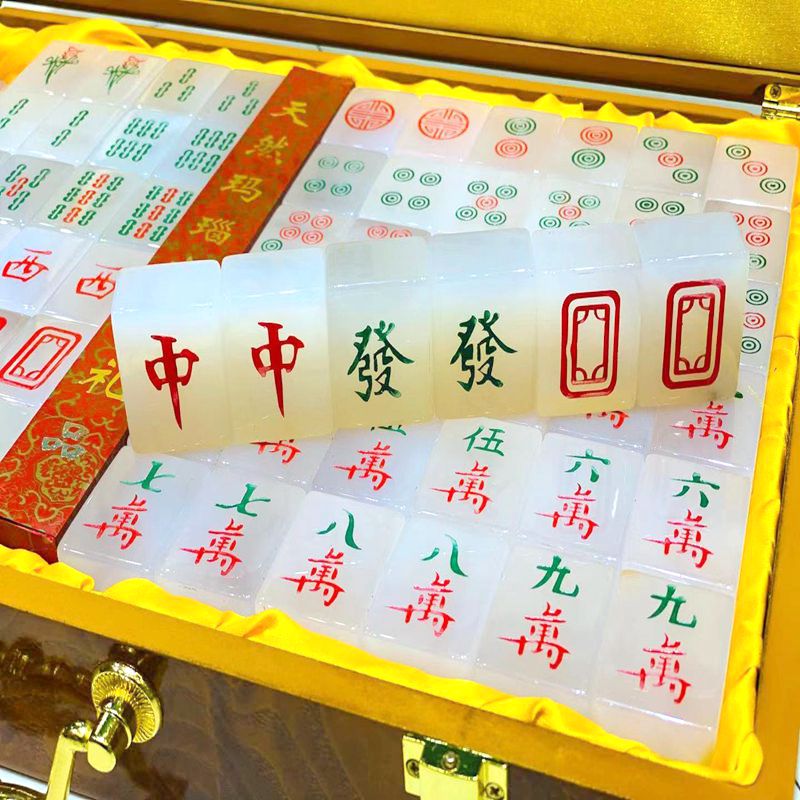 天然玛瑙
礼品
西 西
中 中 發 發
伍 伍
萬 萬 萬 萬
六 六
萬 萬
七 七 八 八 九 九
萬 萬 萬 萬 萬 萬